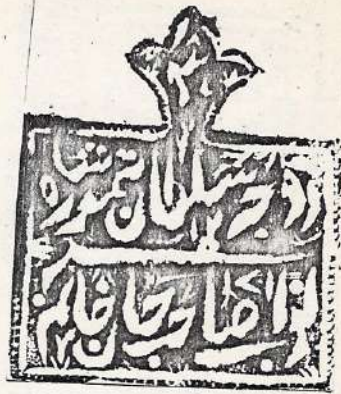 زوجه سلطان تیمور شاه
نواب صاحب جان خانم